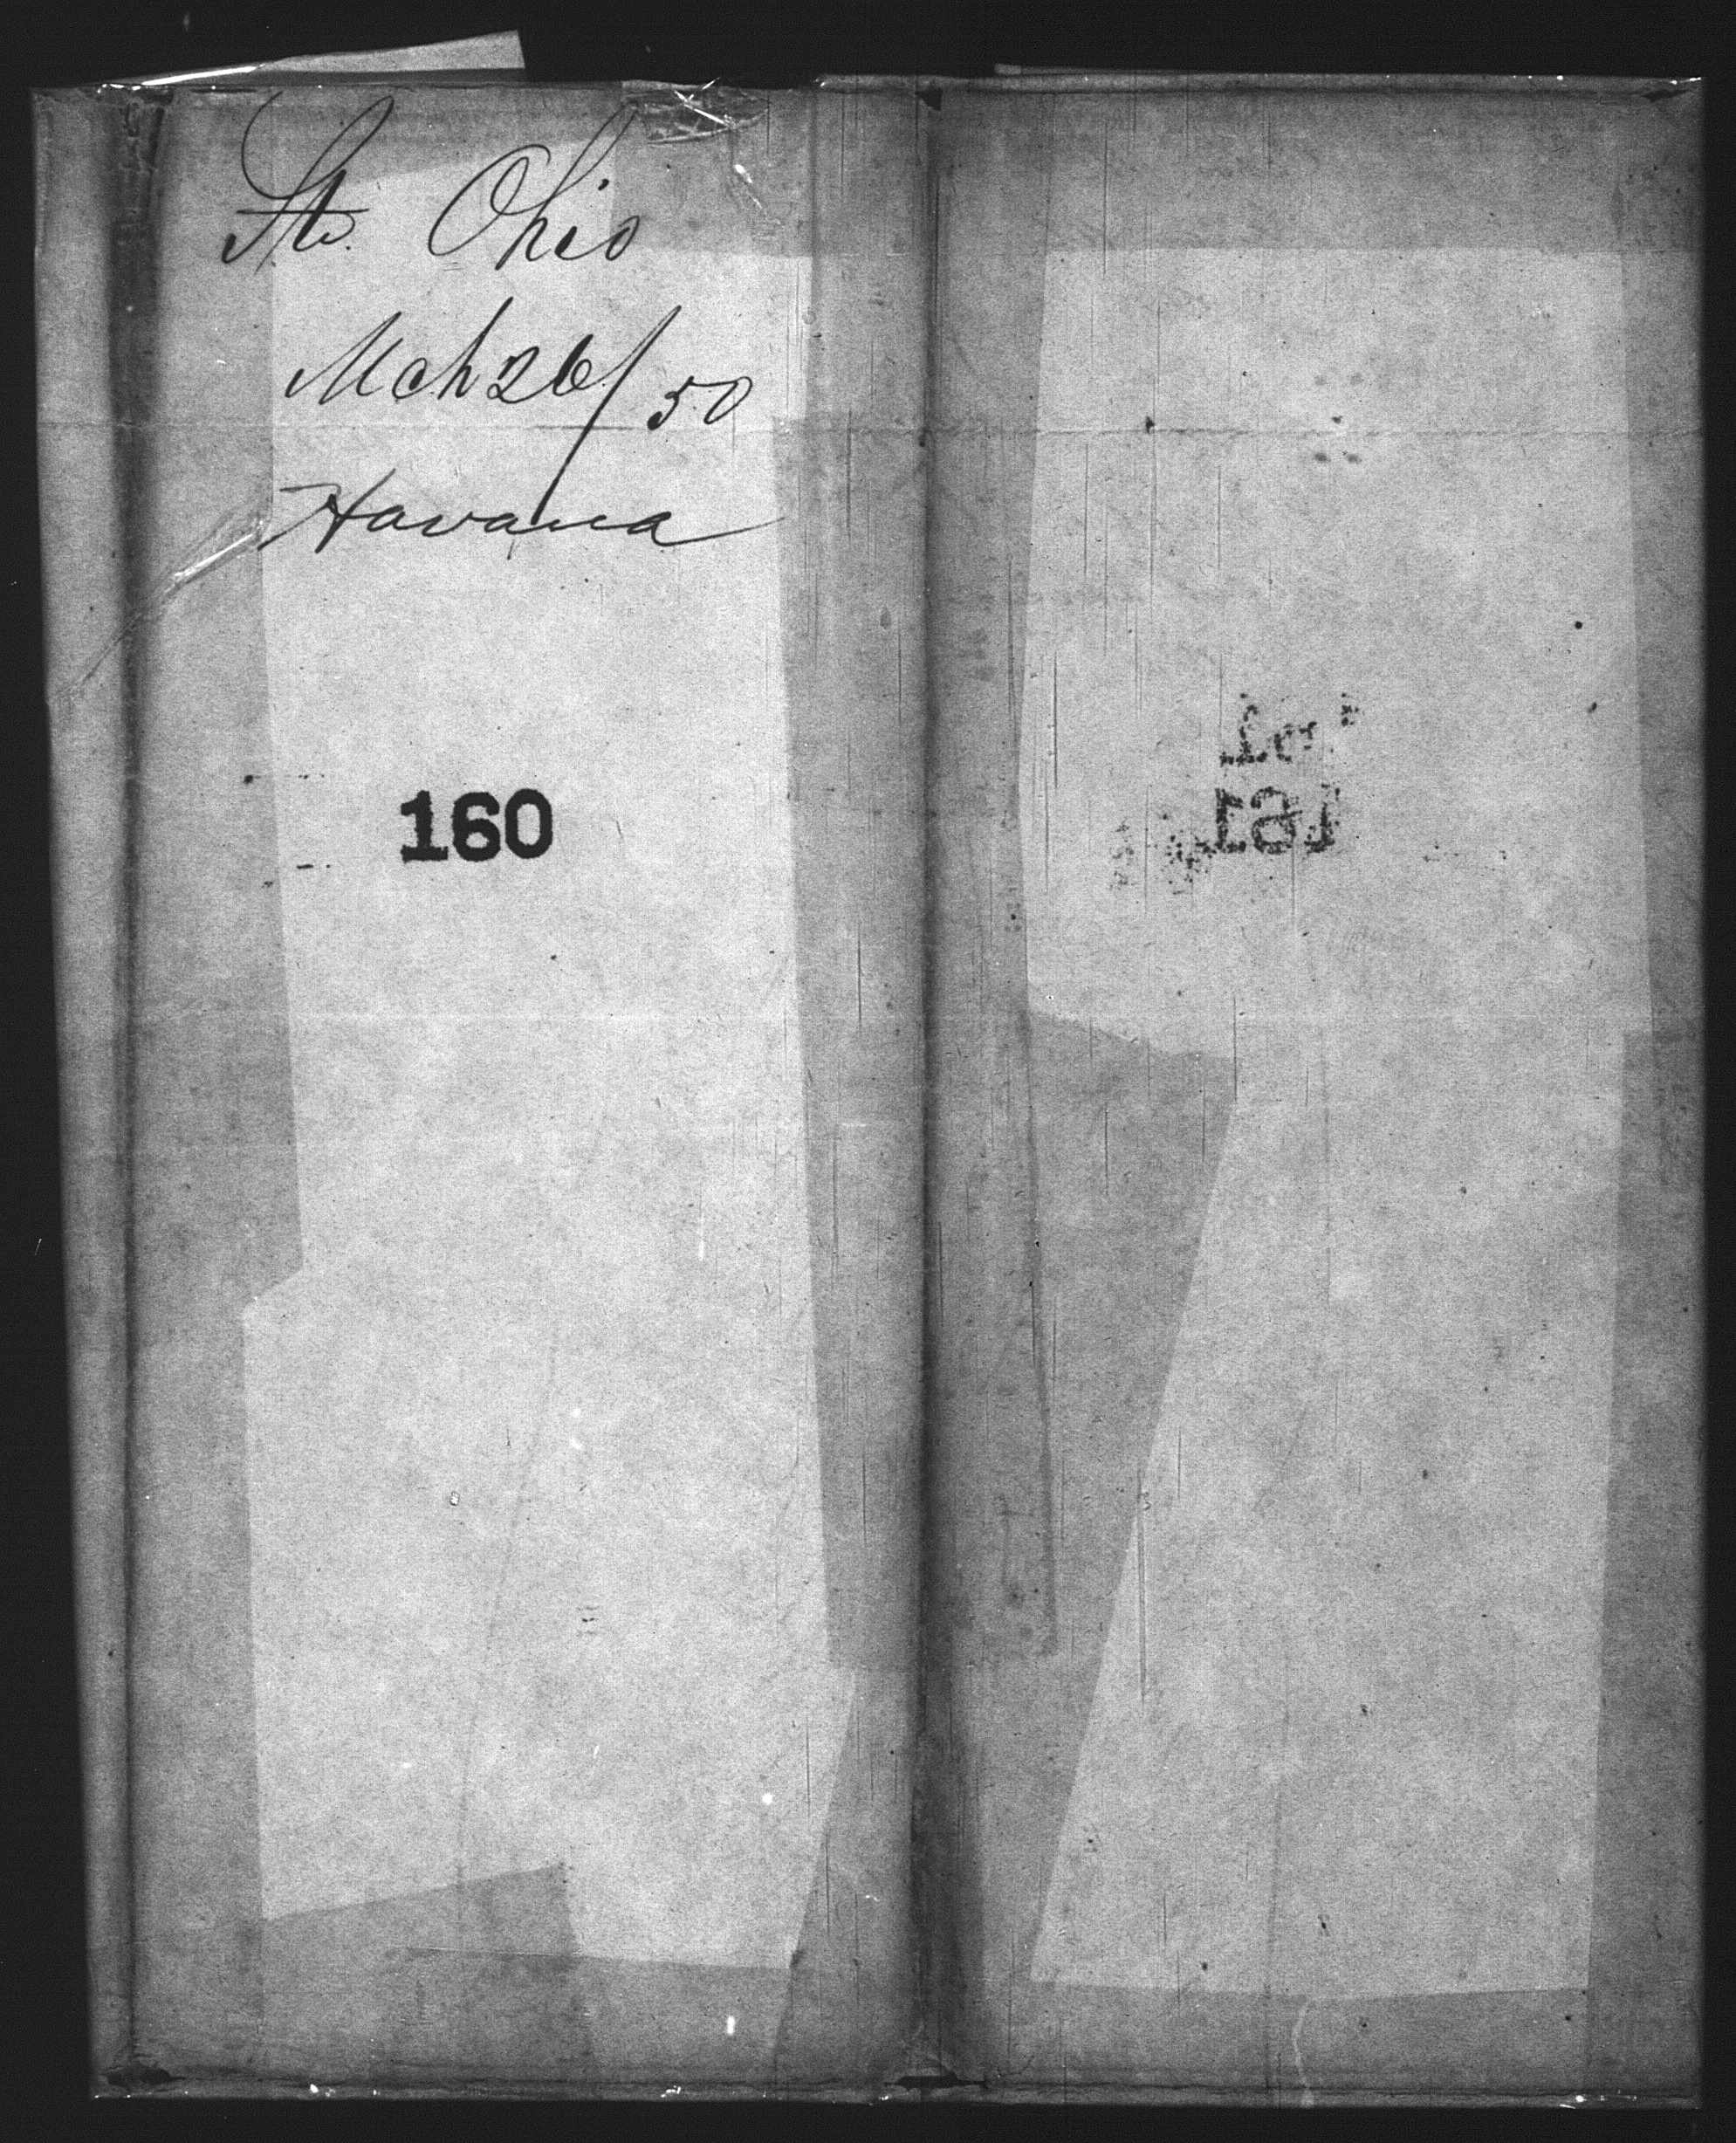 Str. Ohio
Mch 26/50
Havana
160